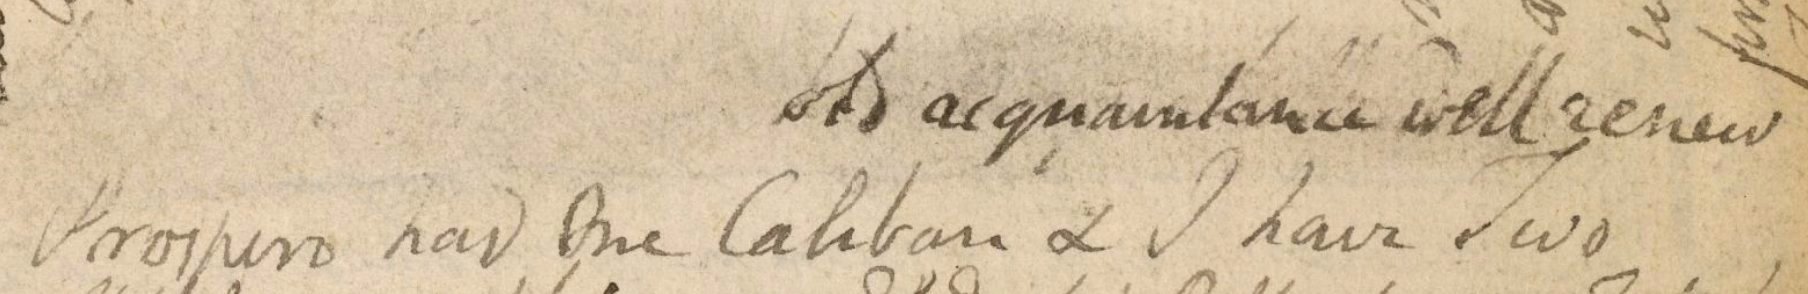 old acquaintance well renew
Prospero had One Caliban & I have Two